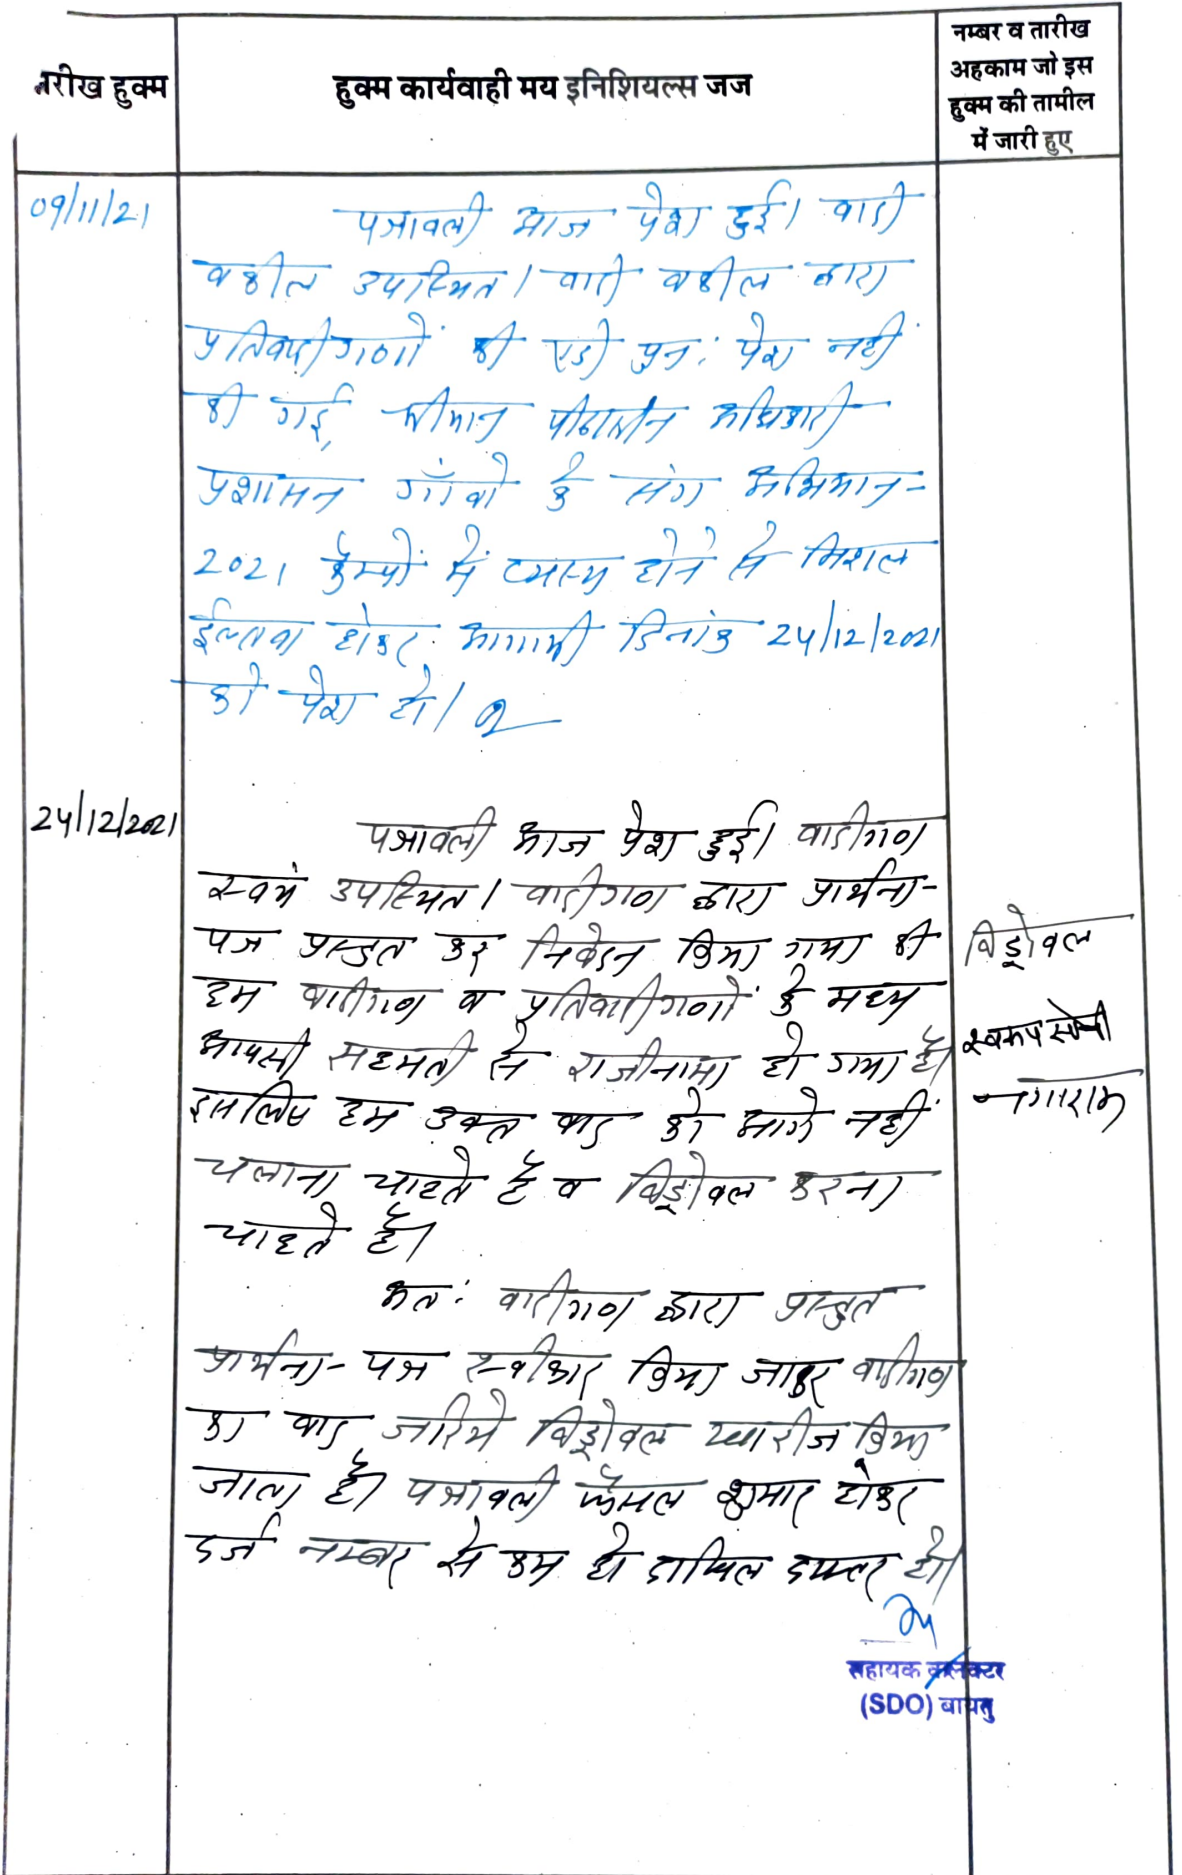 तारीख हुक्म
हुक्म कार्यवाही मय इनिशियल्स जज
नम्बर व तारीख
अहकाम जो इस
हुक्म की तामील
में जारी हुए
09/11/21
पत्रावली आज पेश हुई। वादी
वकील उपस्थित। वादी वकील द्वारा
प्रतिवादीगणों की एडी पुन: पेश नहीं
की गई, श्रीमान पीठासीन अधिकारी
प्रशासन गाँवों के संग अभियान-
2021 कैम्पों में व्यस्थ होने से मिशल
ईल्तवा होकर आगामी दिनांक 24/12/2021
को पेश हो।
24/12/2021
पत्रावली आज पेश हुई। वादीगण
स्वयं उपस्थित। वादीगण द्वारा प्रार्थना-
पत्र प्रस्तुत कर निवेदन किया गया की
हम वादीगण व प्रतिवादीगणों के मध्य
आपसी सहमती से राजीनामा हो गया है।
इसलिए हम उक्त वाद को आगे नहीं
चलाना चाहते है व विड्रोवल करना
चाहते है।
विड्रोवल
नगाराम
अत: वादीगण द्वारा प्रस्तुत
प्रार्थना-पत्र स्वीकार किया जाकर वादीगण
का वाद जरिये विड्रोवल खारीज किया
जाता है। पत्रावली फैसल शुमार होकर
दर्ज नम्बर से कम हो दाखिल दफ्तर हो।
सहायक कलक्टर
(SDO) बायतु